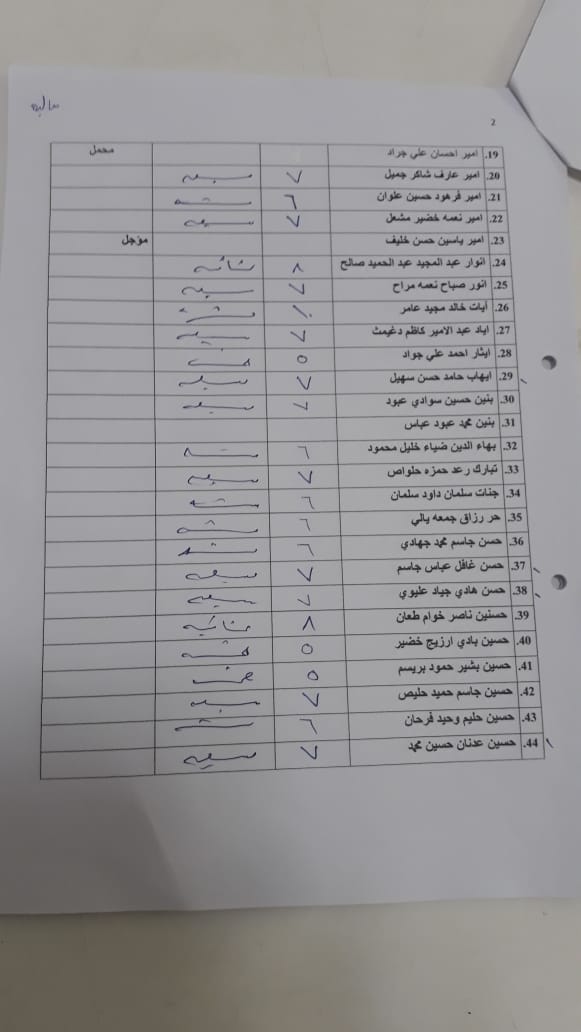 2
19. امير احسان علي جراد محمل
20. امير عارف شاكر جميل ٧ سبعه
21. امير فرهود حسين علوان ٦ سته
22. امير نعمه خضير مشعل ٧ سبعه
23. امير ياسين حسن خليف مؤجل
24. انوار عبد المجيد عبد الحميد صالح ٨ ثمانيه
25. انور صباح نعمه مراح ٧ سبعه
26. آيات خالد مجيد عامر
27. اياد عبد الامير كاظم دغيمث ٧ سبعه
28. ايثار احمد علي جواد ٥
29. ايهاب حامد حسن سهيل ٧ سبعه
30. بنين حسين سوادي عبود ٧ سبعه
31. بنين محمد عبود عباس
32. بهاء الدين ضياء خليل محمود ٦ سته
33. تبارك رعد حمزه حلواص ٧ سبعه
34. جنات سلمان داود سلمان ٦ سته
35. حر رزاق جمعه يالي ٦ سته
36. حسن جاسم محمد جهادي ٦ سته
37. حسن غافل عباس جاسم ٧ سبعه
38. حسن هادي جياد عليوي ٧ سبعه
39. حسنين ناصر خوام طعان ٨ ثمانيه
40. حسين بادي ارزيج خضير ٥
41. حسين بشير حمود بريسم ٥
42. حسين جاسم حميد حليص ٧ سبعه
43. حسين حليم وحيد فرحان ٦ سته
44. حسين عدنان حسين محمد ٧ سبعه